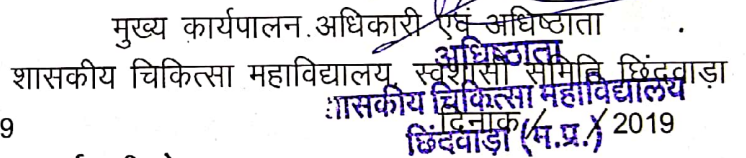 मुख्य कार्यपालन अधिकारी एवं अधिष्ठाता
अधिष्ठाता
शासकीय चिकित्सा महाविद्यालय, स्वशासी समिति छिंदवाड़ा
शासकीय चिकित्सा महाविद्यालय
9
दिनांक / / 2019
छिंदवाड़ा (म.प्र.)